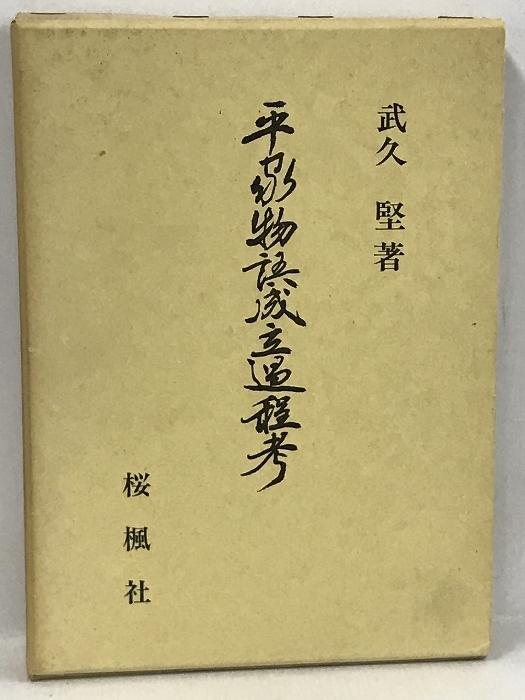 武久 堅 著
平家物語成立過程考
桜楓社